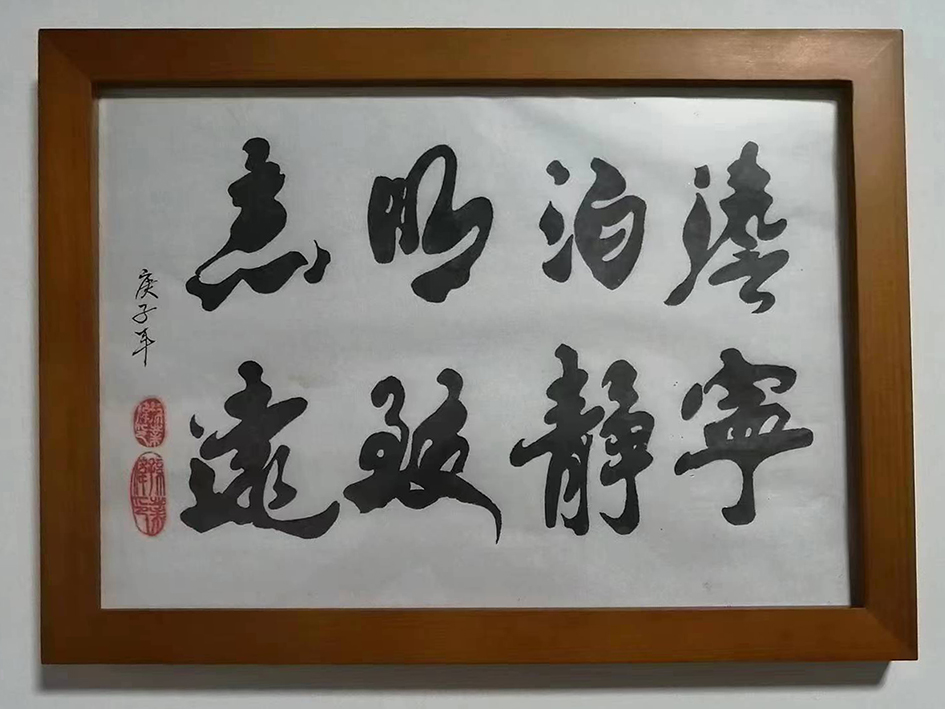 澹泊明志
寧静致遠
庚子年